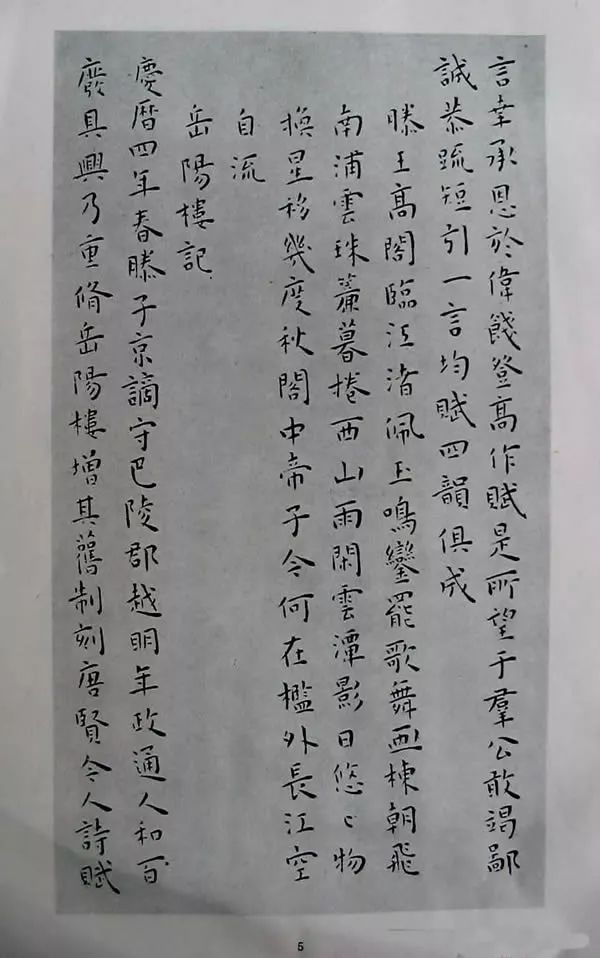 言幸承恩於偉餞登高作賦是所望于羣公敢竭鄙
誠恭疏短引一言均賦四韻俱成
滕王高閣臨江渚佩玉鳴鑾罷歌舞画棟朝飛
南浦雲珠簾暮捲西山雨閑雲潭影日悠〻物
換星移幾度秋閣中帝子今何在檻外長江空
自流
岳陽樓記
慶曆四年春滕子京謫守巴陵郡越明年政通人和百
廢具興乃重脩岳陽樓增其舊制刻唐賢今人詩賦
5